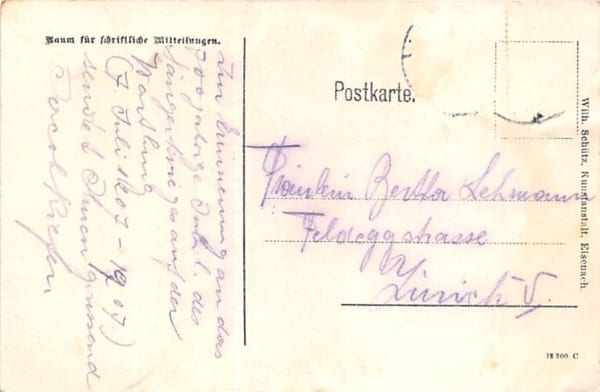 Raum für schriftliche Mitteilungen.
Zur Erinnerung an das
700jährige Jubil. des
Sängerkrieges auf der
Wartburg
(7. Juli 1207 - 1907.)
sendet Ihnen grüssend
Postkarte.
Fräulein Bertha Lehmann
Feldeggstrasse
Zürich V.
Wilh. Schütz, Kunstanstalt, Eisenach.
12 300 C